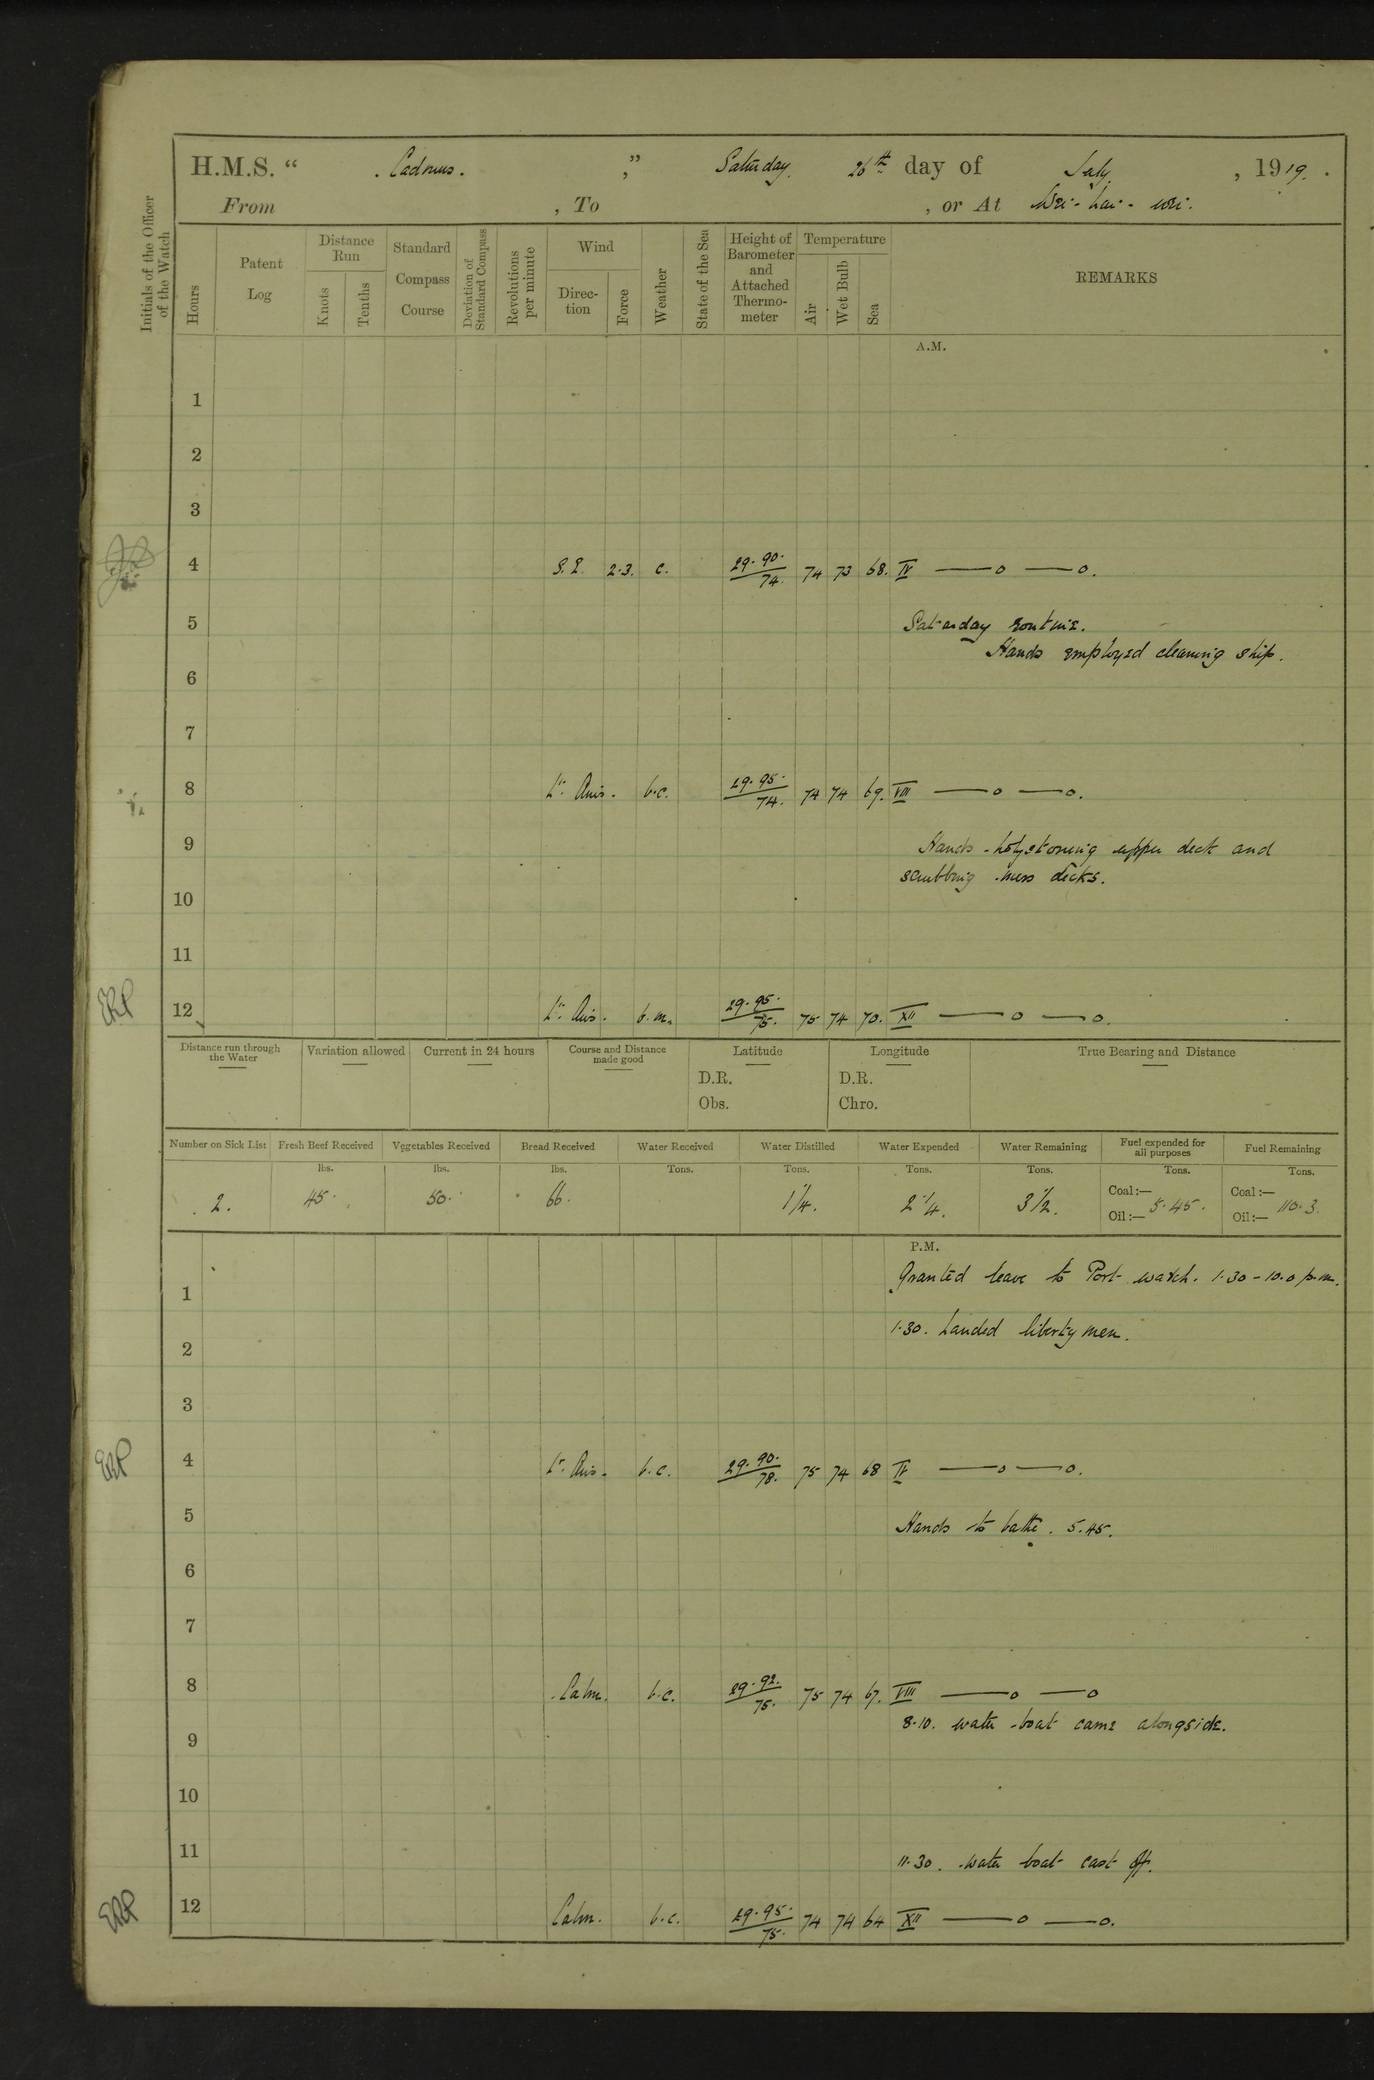 H.M.S. “ Cadmus. ,” Saturday. 26th day of July , 1919.
From , To , or At Wei-hai-wei.
Initials of the Officer of the Watch
Hours
Patent Log
Distance Run
Knots
Tenths
Standard Compass Course
Deviation of Standard Compass
Revolutions per minute
Wind
Direc-tion
Force
Weather
State of the Sea
Height of Barometer and Attached Thermo-meter
Temperature
Air
Wet Bulb
Sea
REMARKS
A.M.
1
2
3
4 S.E. 2-3. c. 29.90. 74. 74 73 68. IV ——o ——o.
5 Saturday routine.
Hands employed cleaning ship.
6
7
8 Lt. Airs. b.c. 29.95. 74. 74 74 69. VIII ——o ——o.
9 Hands holystoning upper deck and
scrubbing mess decks.
10
11
ERP 12 Lt. Airs. b.m. 29.95. 75. 75 74 70. XII ——o ——o.
Distance run through the Water
Variation allowed
Current in 24 hours
Course and Distance made good
Latitude
D.R.
Obs.
Longitude
D.R.
Chro.
True Bearing and Distance
Number on Sick List Fresh Beef Received Vegetables Received Bread Received Water Received Water Distilled Water Expended Water Remaining Fuel expended for all purposes Fuel Remaining
lbs. lbs. lbs. Tons. Tons. Tons. Tons. Tons. Tons.
2. 45. 50. 66. 1 1/4. 2 1/4. 3 1/2. Coal:— Oil:— 5.45. Coal:— Oil:— 110.3.
P.M.
Granted leave to Port watch. 1.30 - 10.0 p.m.
1
1.30. Landed liberty men.
2
3
ERP 4 Lt. Airs. b.c. 29.90. 78. 75 74 68 IV ——o ——o.
5 Hands to bathe. 5.45.
6
7
8 Calm. b.c. 29.92. 75. 75 74 67. VIII ——o ——o
8.10. water boat came alongside.
9
10
11 11.30. water boat cast off.
ERP 12 Calm. b.c. 29.95. 75. 74 74 64 XII ——o ——o.